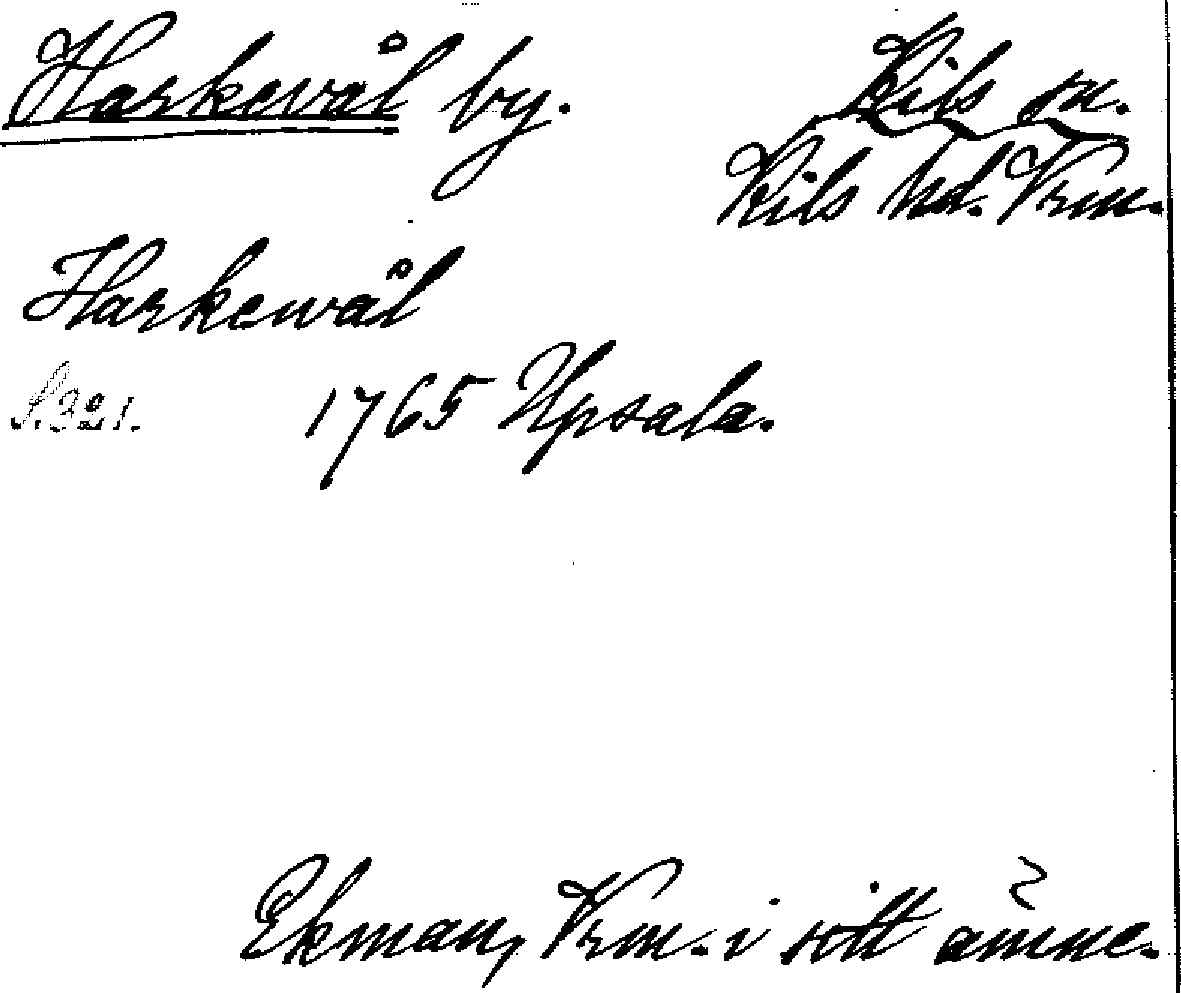 Harkevål by. Kils sn.
Kils hd. Vrm.
Harkewål
S. 321. 1765 Upsala.
Ekman, Vrm. i sitt ämne.